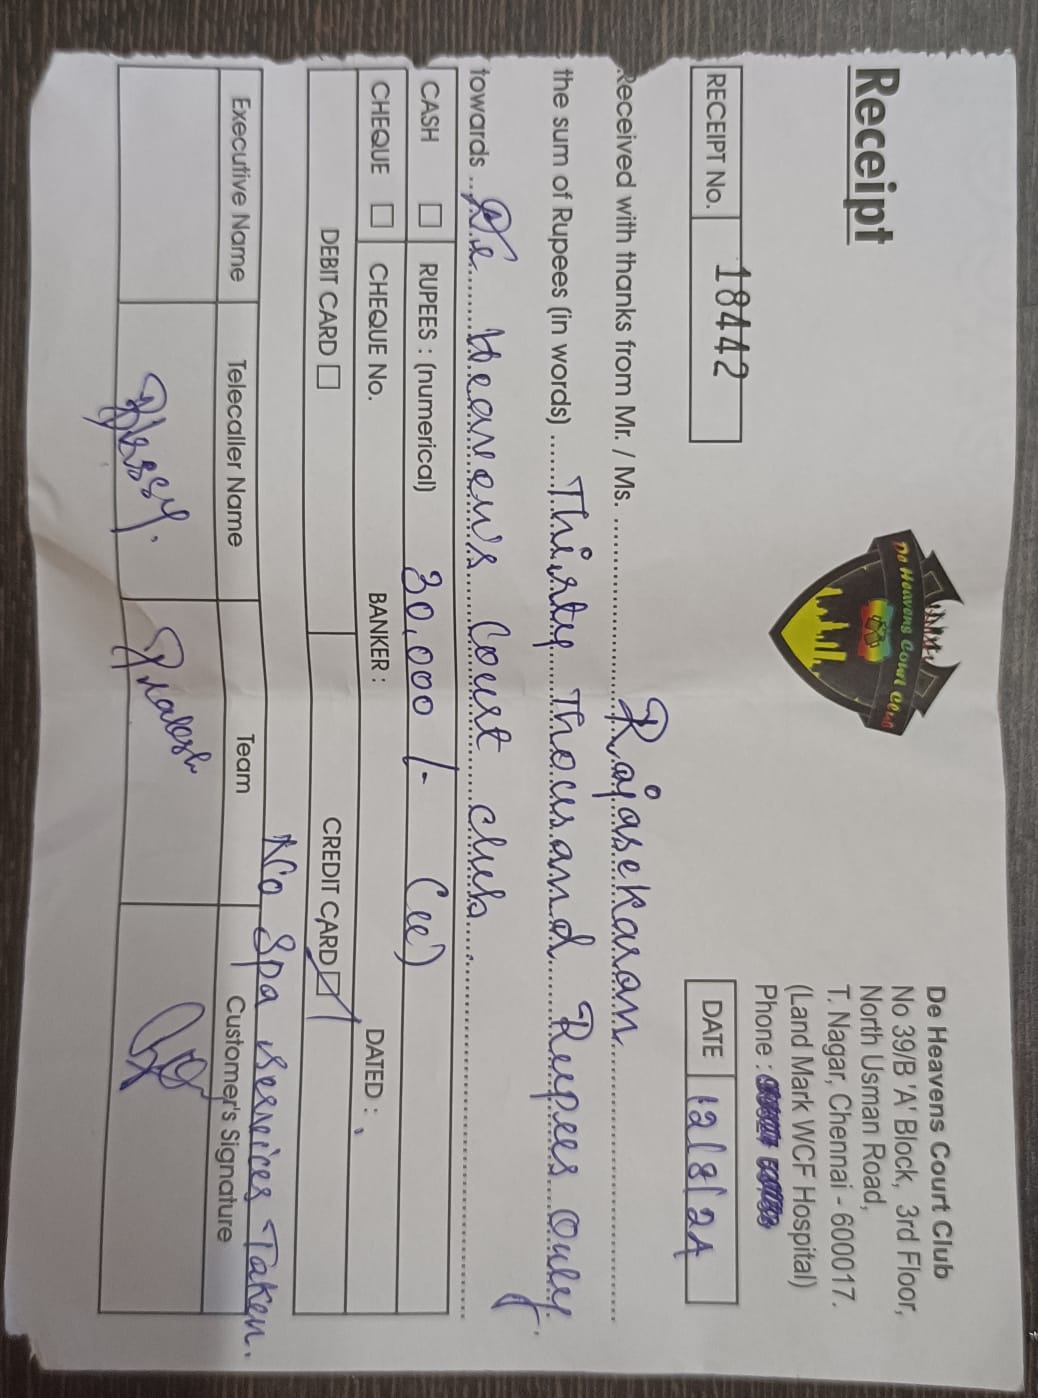 Receipt
De Heavens Court Club
De Heavens Court Club
No 39/B 'A' Block, 3rd Floor,
North Usman Road,
T. Nagar, Chennai - 600017.
(Land Mark WCF Hospital)
Phone :
RECEIPT No. 18442
DATE 12/8/24
Received with thanks from Mr. / Ms. Rajasekaran
the sum of Rupees (in words) Thirty Thousand Rupees Only.
towards De Heaven's Court Club
CASH RUPEES : (numerical) 30,000/-
CHEQUE CHEQUE No. BANKER : DATED :
DEBIT CARD CREDIT CARD
No Spa Services Taken.
Executive Name Telecaller Name Team Customer's Signature